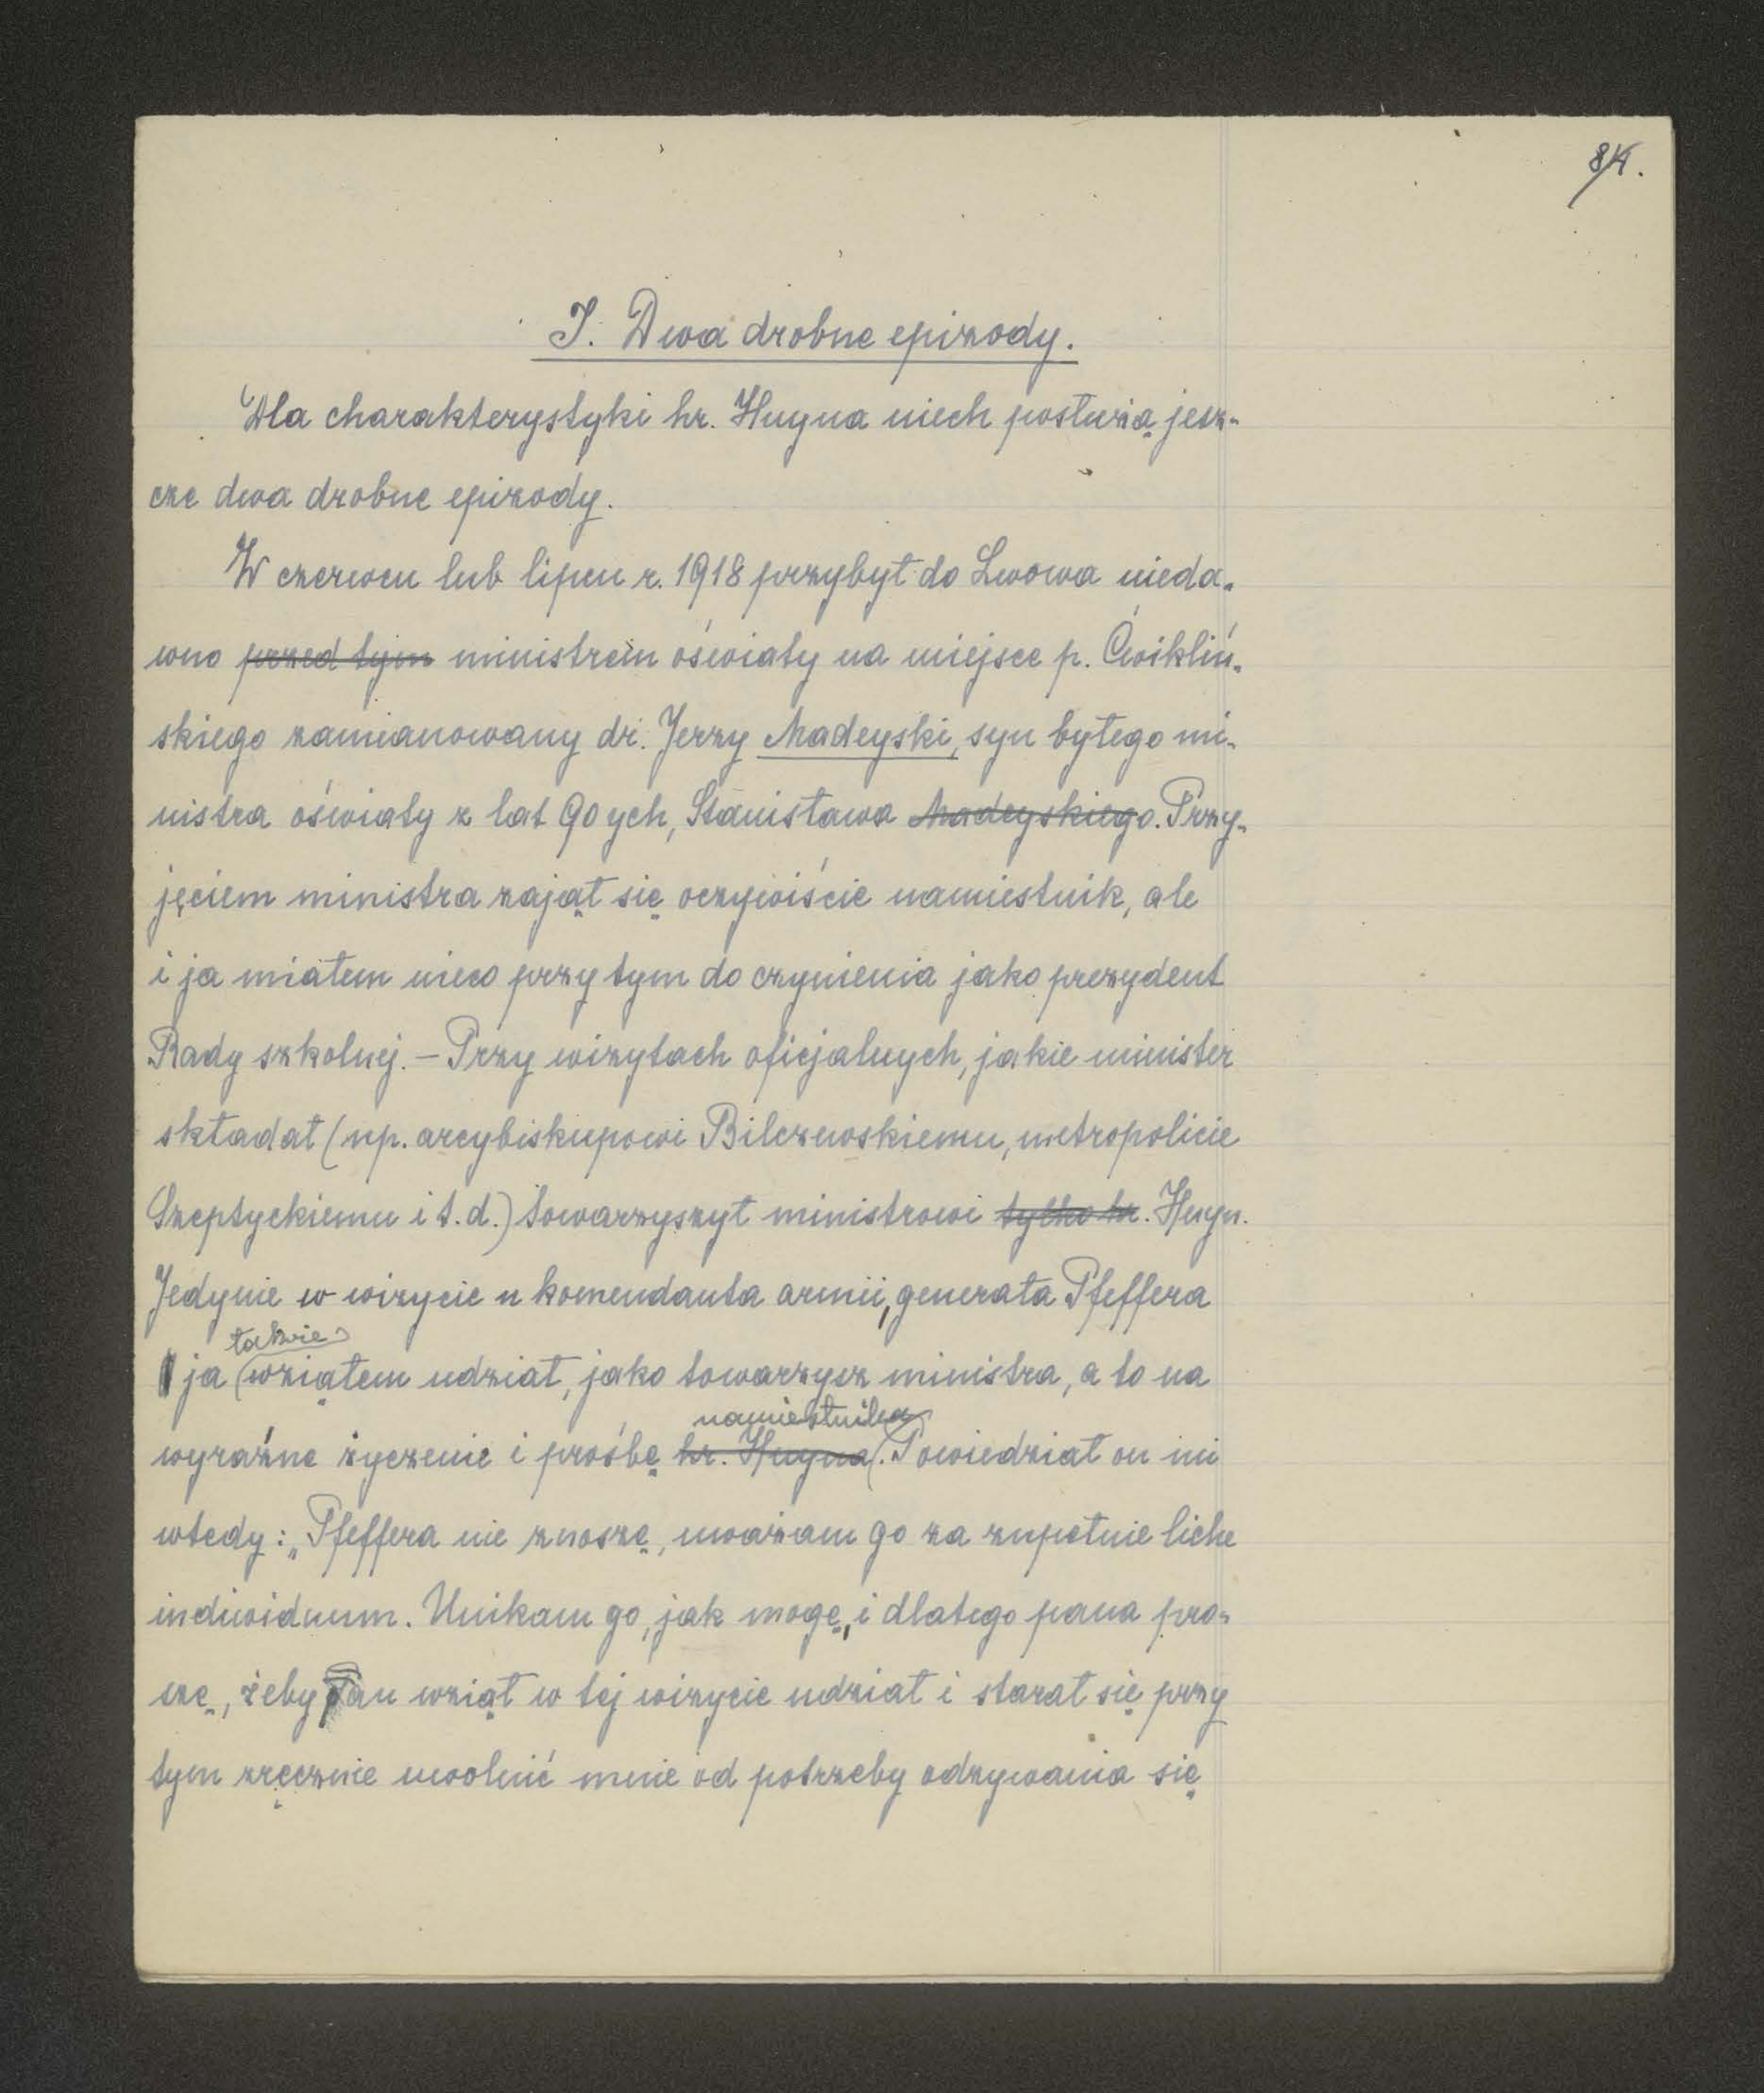 I. Dwa drobne epizody.
Dla charakterystyki hr. Huyna niech posłużą jesz-
cze dwa drobne epizody.
W czerwcu lub lipcu r. 1918 przybył do Lwowa nieda-
wno przed tym ministrem oświaty na miejsce p. Ćwikliń-
skiego zamianowany dr. Jerzy Madeyski, syn byłego mi-
nistra oświaty z lat 90 ych, Stanisława Madeyskiego. Przy-
jęciem ministra zajął się oczywiście namiestnik, ale
i ja miałem nieco przy tym do czynienia jako prezydent
Rady szkolnej. – Przy wizytach oficjalnych, jakie minister
składał (np. arcybiskupowi Bilczewskiemu, metropolicie
Szeptyckiemu i t. d.) towarzyszył ministrowi tylko hr. Huyn.
Jedynie w wizycie u komendanta armii, generała Pfeffera
także
ja wziąłem udział, jako towarzysz ministra, a to na
namiestnika
wyraźne życzenie i prośbę hr. Huyna. Powiedział on mi
wtedy: „Pfeffera nie znoszę, uważam go za zupełnie liche
indiwiduum. Unikam go, jak mogę, i dlatego pana pro-
szę, żeby Pan wziął w tej wizycie udział i starał się przy
tym zręcznie uwolnić mnie od potrzeby odzywania się